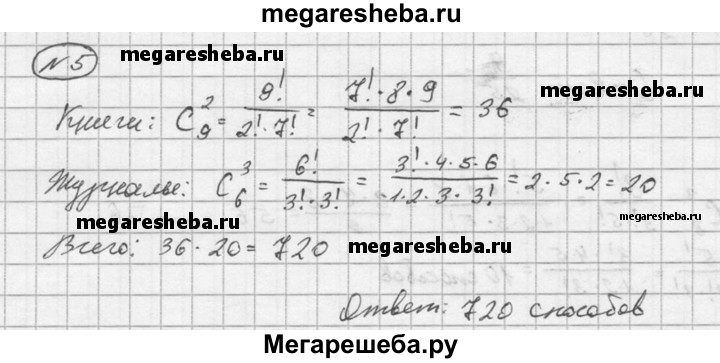 megaresheba.ru
№ 5
megaresheba.ru
megaresheba.ru
Книги: C₉² = 9!/(2!·7!) = 7!·8·9/(2!·7!) = 36
Журналы: C₆³ = 6!/(3!·3!) = 3!·4·5·6/(1·2·3·3!) = 2·5·2 = 20
megaresheba.ru
megaresheba.ru
Всего: 36·20 = 720
megaresheba.ru
Ответ: 720 способов
Мегарешеба.ру